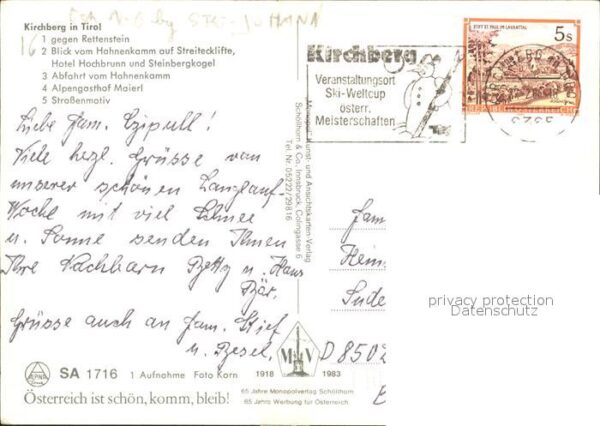 Kirchberg in Tirol
1 gegen Rettenstein
2 Blick vom Hahnenkamm auf Streitecklifte,
Hotel Hochbrunn und Steinbergkogel
3 Abfahrt vom Hahnenkamm
4 Alpengasthof Maierl
5 Straßenmotiv
Liebe Fam. Czipull!
Viele herzl. Grüsse von
unserer schönen Langlauf-
Woche mit viel Schnee
u. Sonne senden Ihnen
Ihre Nachbarn Betty u. Hans
Bär.
Grüsse auch an Fam. Stief
u. Besel.
SA 1716 1 Aufnahme Foto Korn
Österreich ist schön, komm, bleib!
Monopol-Kunst- und Ansichtskarten-Verlag
Schöllhorn & Co, Innsbruck, Colingasse 6
Tel. Nr. 05222/29816
MV
1918 1983
65 Jahre Monopolverlag Schöllhorn
65 Jahre Werbung für Österreich
Kirchberg
Veranstaltungsort
Ski-Weltcup
österr.
Meisterschaften
STIFT ST. PAUL IM LAVANTTAL
5 S
Fam
Hein
Sude
D 8502
privacy protection
Datenschutz